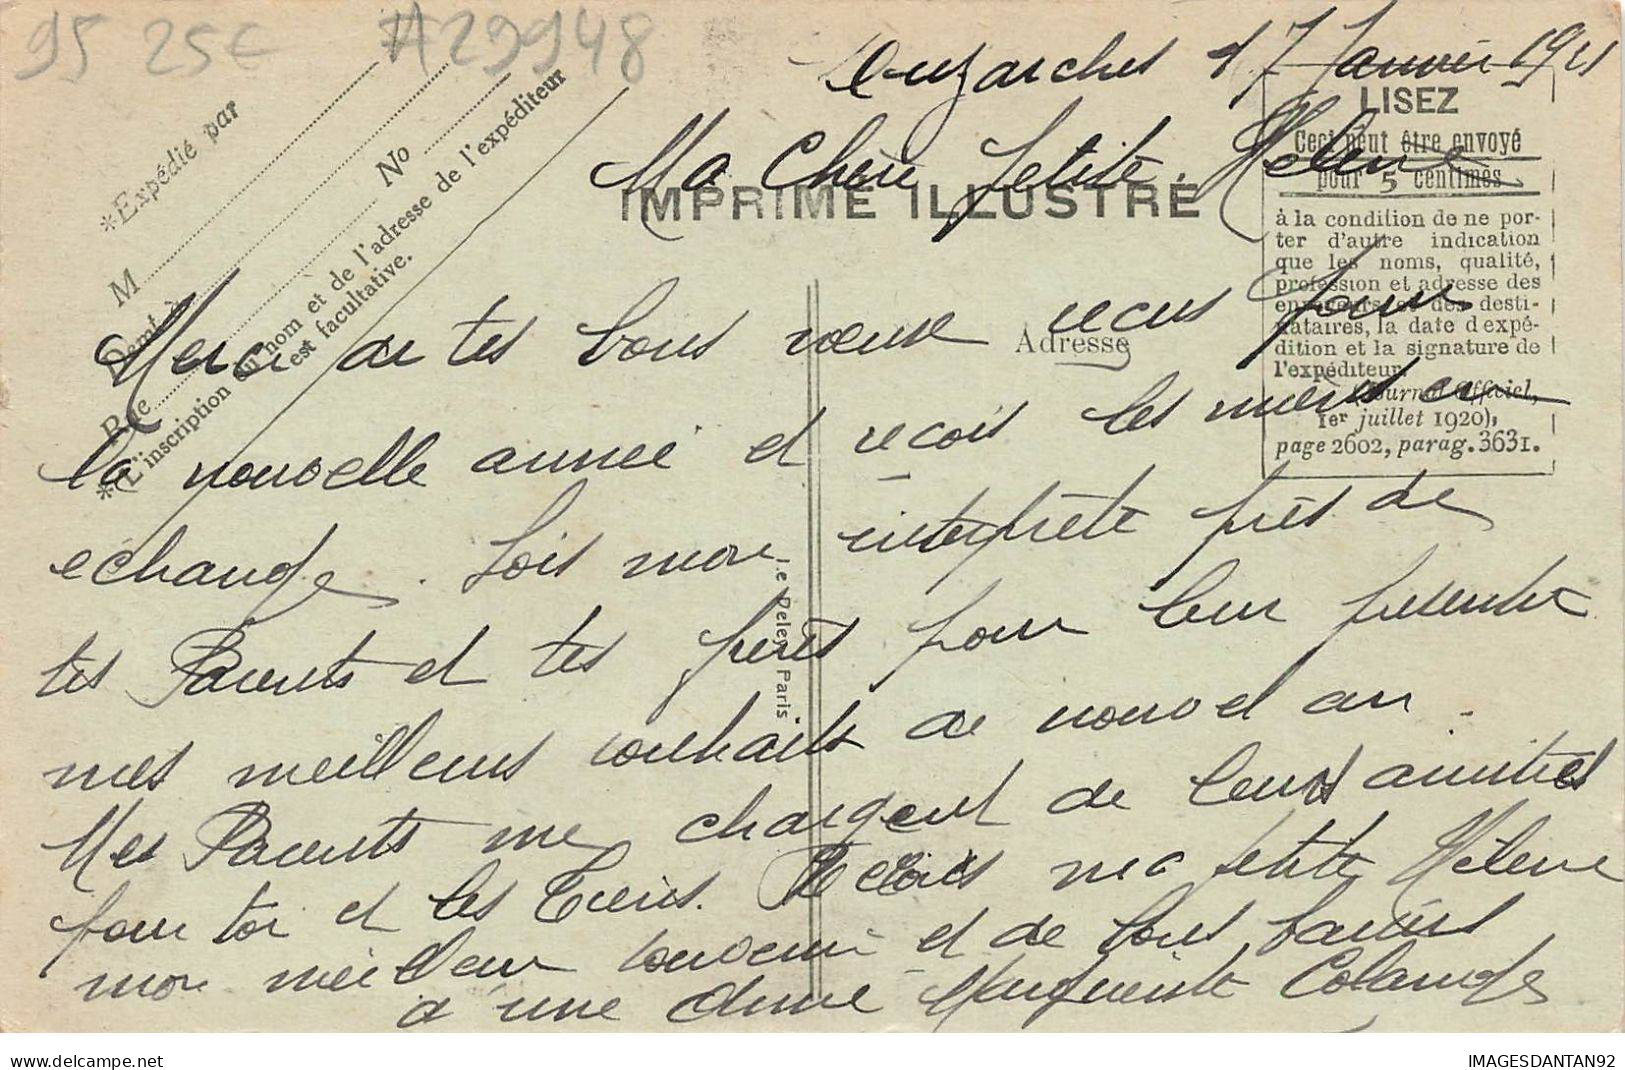 95 25€ A29948
Luzarches 17 Janvier 1921
LISEZ
Ceci peut être envoyé
pour 5 centimes
à la condition de ne por-
ter d'autre indication
que les noms, qualité,
profession et adresse des
envoyeurs et des desti-
nataires, la date d'expé-
dition et la signature de
l'expéditeur.
(Journal Officiel,
1er juillet 1920),
page 2602, parag. 3631.
*Expédié par
M
Demt à
No
Rue
*L'inscription du nom et de l'adresse de l'expéditeur
est facultative.
IMPRIMÉ ILLUSTRÉ
Adresse
Le Deley, Paris
Ma Chère Petite Helene
Merci de tes bons vœux recus pour
la nouvelle année et recois les miens en
echange. Sois mon interprète près de
tes Parents et tes frères pour leur présenter
mes meilleurs souhaits de nouvel an.
Mes Parents me chargent de leurs amitiés
pour toi et les tiens. Recois ma petite Hélène
mon meilleur souvenir et de bons baisers
d'une amie Marguerite
delcampe.net
IMAGESDANTAN92